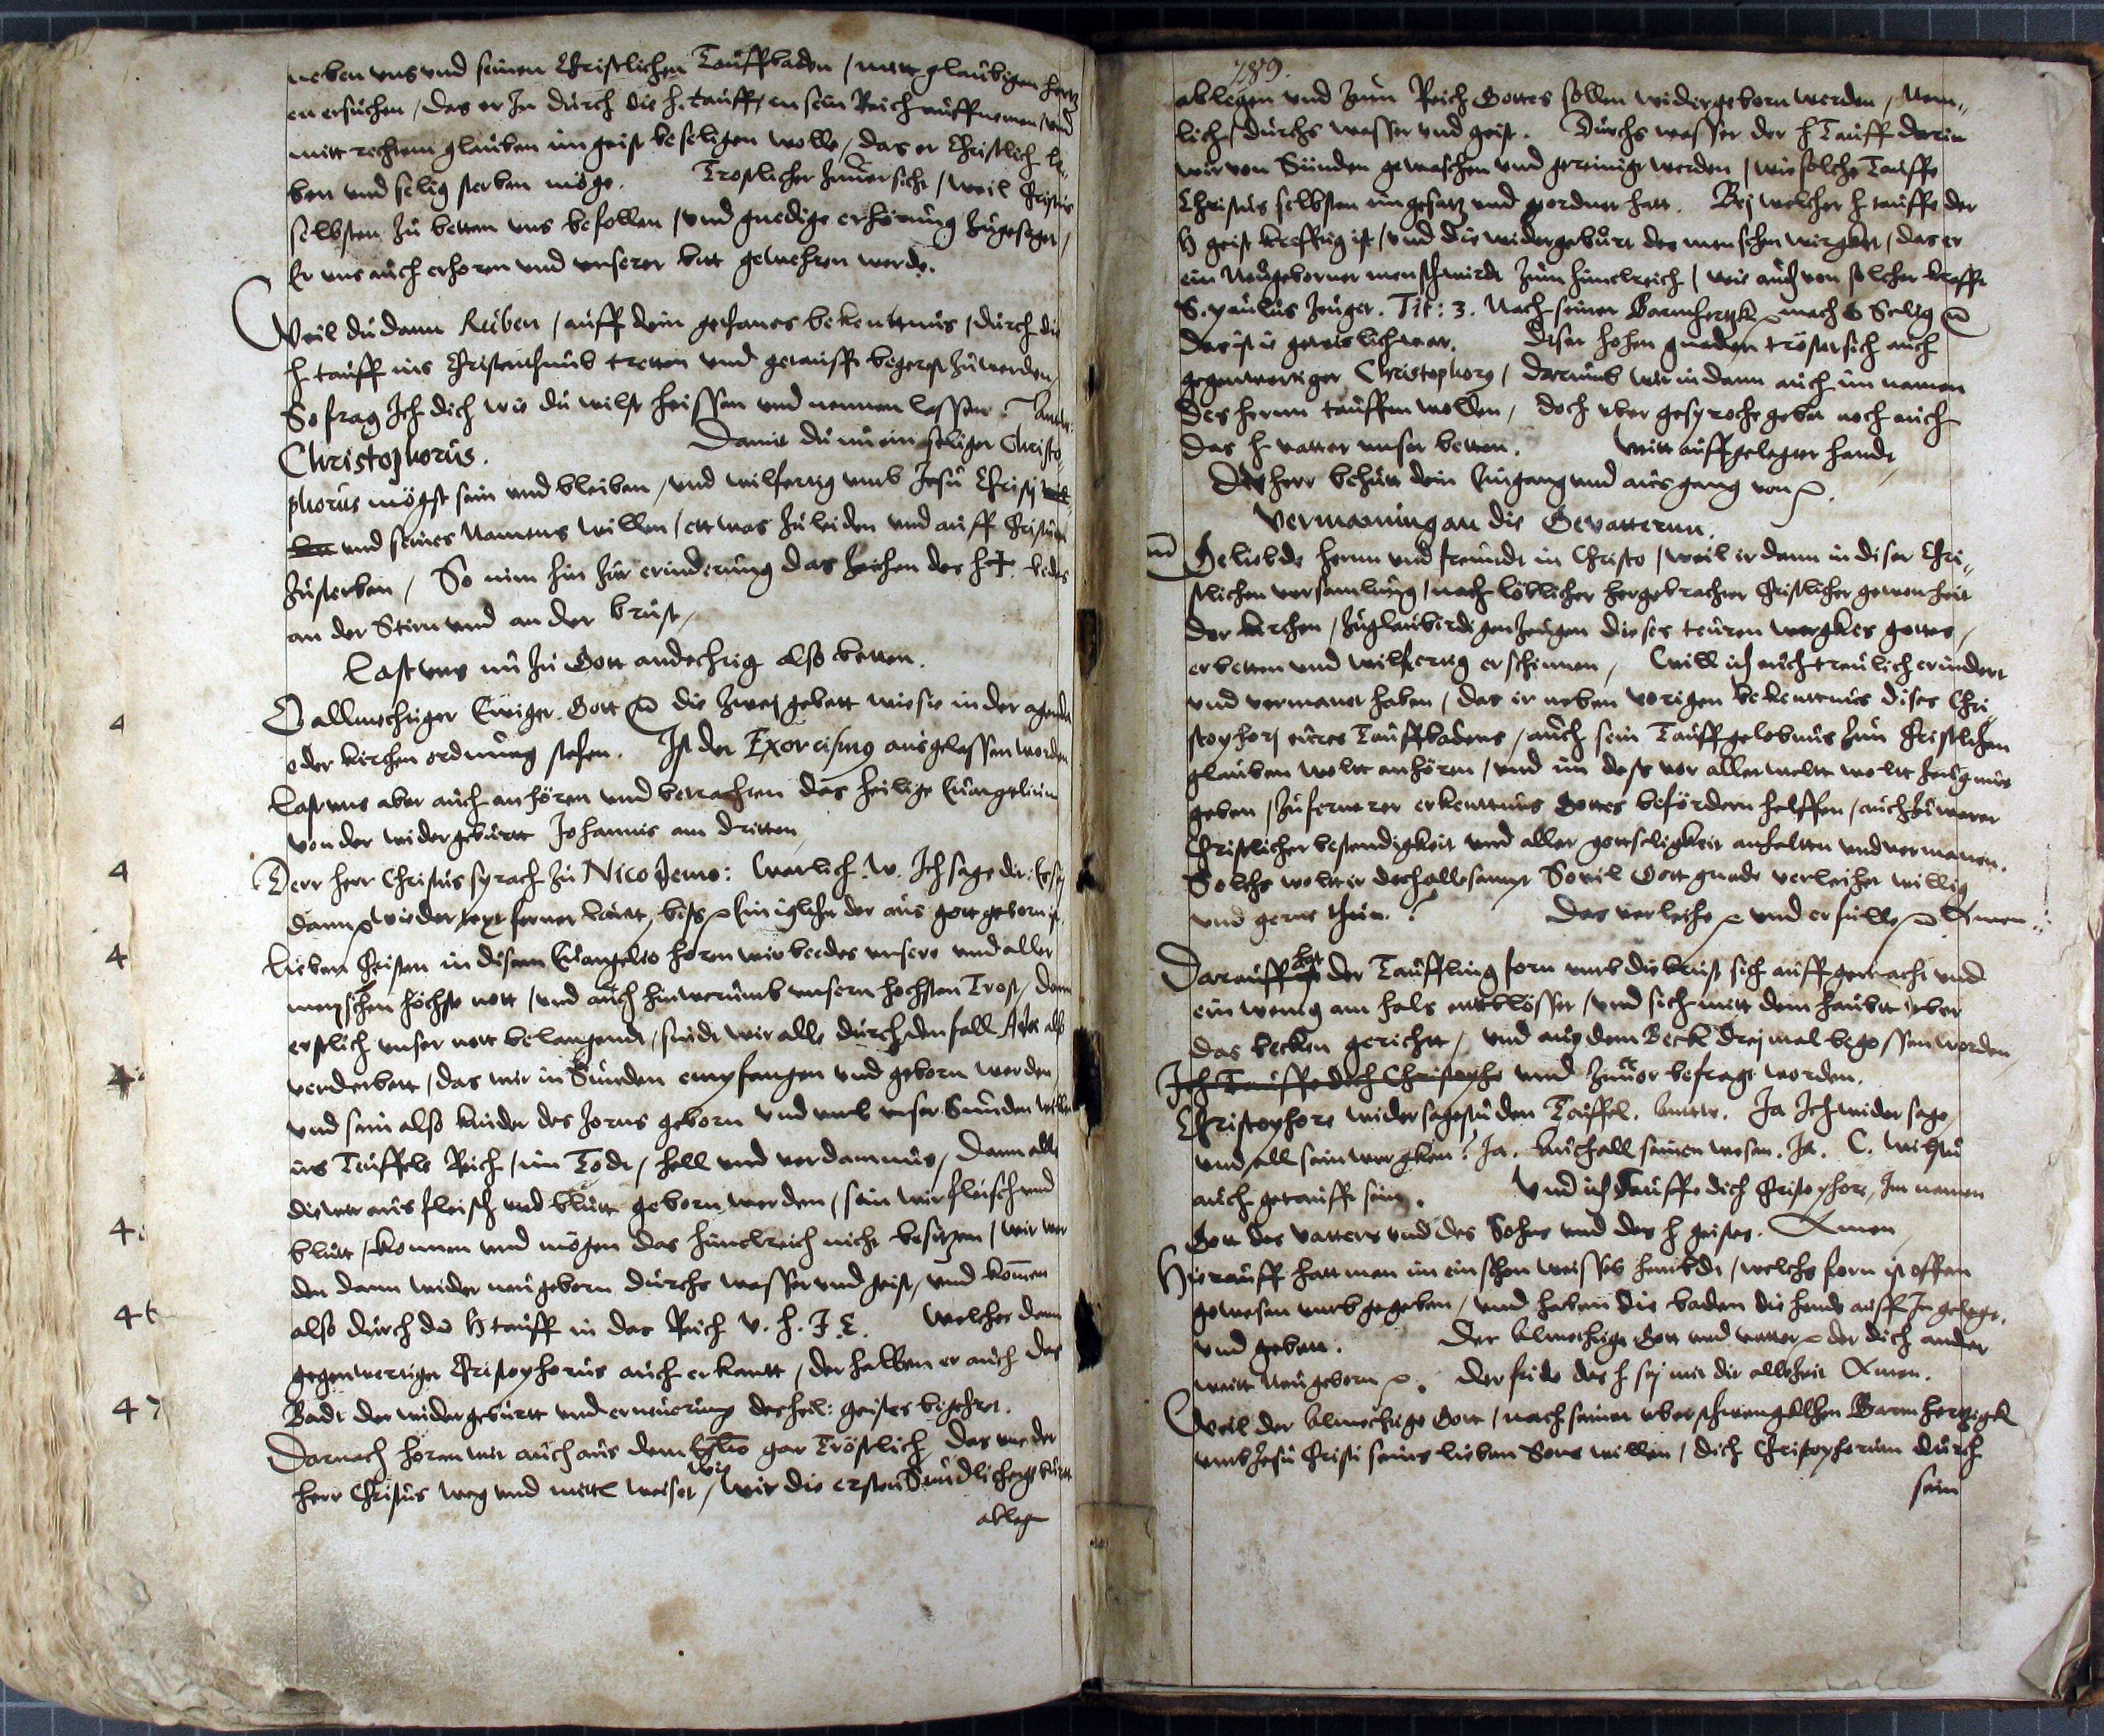 neben uns und seinen Christlichen Tauffbaden / mitt glaubigen hertz
en ersuchen / das er In durch die h. tauff, in sein Reich auffnemen, und
mitt rechtem glauben im geist beseligen wolle, das er Christlich le¬
ben und selig sterben möge. Trostlicher Zuversicht / weil Christus
selbsten zu betten uns befollen / und gnedige erhörung zugesaget,
Er uns auch erhoren und unserer bitt gewehren werde.
Weil du dann Ruben / auff dein gethanes bekenttnus / durch die
h. tauff ins Christenthumb tretten und getaufft begerest zu werden,
So frag Ich dich wie du wilst heissen und nennen lassen? Antw:
Christophorus. Damit du nu ein seliger Christo¬
phorus mögst sein und bleiben / und wilfertig umb Jesu Christi
und seines Namens willen / ettwas zu leiden und auff Christum
zusterben / So nim hin zur erinderung das zeichen des h. † beides
an der Stirn und an der brust,
Last uns nu zu Gott andechtig also betten.
O allmechtiger Ewiger Gott die zwey gebett wie sie in der agenda
oder kirchen ordnung stehen. Ist der Exorcismus ausgelassen worden
Last uns aber auch anhören und betrachten das heilige Euangelium
von der widergeburtt Johannis am dritten
Derr herr Christus sprach zu Nicodemo: Warlich. W. Ich sage dir: Es sey
dann wie der text ferner lautt, biss Ein iglicher der aus gott geborn ist.
Lieben Christen in disem Euangelio horen wir beedes unsere und aller
menschen höchste nott / und auch hinwerumb unsern hochsten Trost, dann
erstlich unser nott belangendt, sindt wir alle durch den fall Adae also
verderbett / das wir in Sünden empfangen und geborn werden,
und sein also kinder des zorns geborn und umb unser Sünden willen
ins Teuffels Reich / im Todt, hell und verdamnus, Dann alle
die wir aus fleisch und blutt geborn werden, sein wir fleisch und
blutt, konnen und mögen das himelreich nicht besitzen / wir wer
den dann wider neu geborn durchs wasser und geist, und komen
also durch die H tauff in das Reich U. h. J. C. Welches dann
gegenwertiger Christophorus auch erkantt, der halben er auch das
Badt der widergeburtt und erneurung des heil: geistes begehret.
Darnach horen wir auch aus dem Eglio gar Tröstlich, das uns der
herr Christus weg und mittel weiset, wie wir die ersten Sündliche geburtt
ablege
789.
ablegen und zum Reich Gottes sollen widergeborn werden, Nem¬
lich, durchs wasser und geist. Durchs wasser der h Tauff darin
wir von Sünden gewaschen und gereinigt werden, wie solche Tauffe
Christus selbsten eingesatz und geordnet hatt. Bey welcher h tauffe der
H geist krefftig ist, und die widergeburt des menschen wirgket, das er
ein Neugeborner mensch wirdt zum himelreich / wie auch von solcher krafft
S. paulus zeuget. Tit: 3. Nach seiner Barmhertzk nach S Selig
das ist ie gewislich war. Diser hohen gnaden tröstet sich auch
gegenwertiger Christophorus, darumb wir in dann auch im namen
des herrn tauffen wollen, doch uber gesprochs gebett noch auch
das h vatter unser betten. Mitt auffgelegter handt
Der herr behütt dein Eingang und ausgang von
Vermanung an die Gevatternn.
Geliebde herrn und freundt in Christo, weil er dann in diser Chri¬
stlichen versamlung / nach löblicher hergebrachter Christlicher gewonheit
der kirchen, zu glaubwirdigen zeugen dieses teuren wergkes gottes,
erbetten und wilfertig erschinnen, Will ich euch treulich erindert
und vermanet haben, das ir neben vorigen bekenttnus dises Chri
stophori eures Tauffbadens, auch sein Tauffgelobnus zum Christlichen
glauben wolt anhören, und im dess vor aller weltt wolt zeugnus
geben, zu fernerer erkenttnus Gottes befördern helffen, auch zu warer
Christlicher bestendigkeit und aller gottseligkeit anhaltten und vermanen.
Solchs woltt ir doch allesampt Sovil Gott gnade verleihet willig
und gerne thun? Das verleihe und erfülle Amen
Darauff hat der Täuffling forn umb die brust sich auffgemacht und
ein wenig am hals enttblösset, und sich mitt dem haubtt uber
das becken gerichtt, und aus dem Beck dreymal begossen worden
Ich Tauffe dich Christopho und zuvor befragt worden.
Christophore widersagestu den Teuffel. Antw. Ja Ich widersage,
und all sein wergken? Ja. Auch all seinem wesen. Ja. C. Wiltu
auch getaufft sein. Und ich Tauffe dich Christophore, Im namen
Gott des vatters und des Sohns und des h geistes. Amen
Hierauff hatt man im ein schon weisses hembdt, welchs forn ist offen
gewesen umb gegeben, und haben die baden die hende auff In gelegt,
und gebett. Der Almechtige Gott und vatter der dich ander
weitt neugeborn Der fride des h sey mit dir allezeit Amen.
Weil der Almechtige Gott, nach seiner uberschwengklichen Barmhertzigk
umb Jesu Christi seines lieben Sons willen, dich Christophorum durch
sein